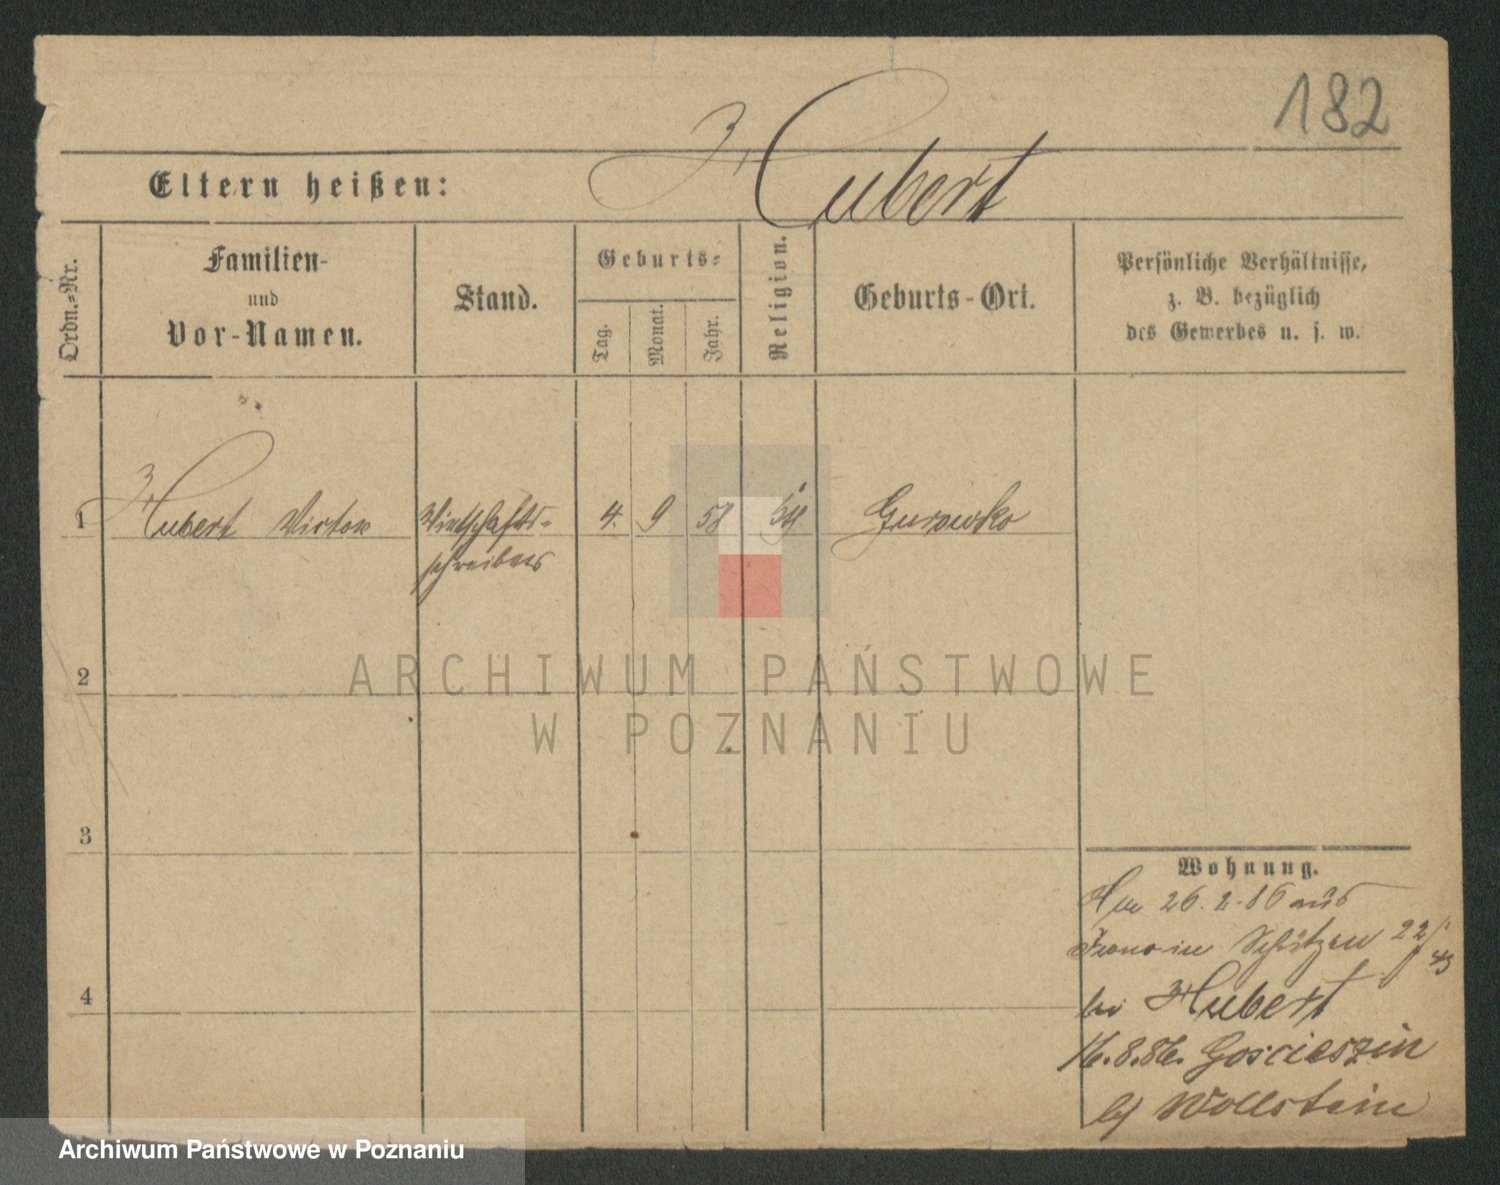 182
Eltern heißen: Hubert
Ordn.-Nr.
Familien-
und
Vor-Namen.
Stand.
Geburts-
Tag.
Monat.
Jahr.
Religion.
Geburts-Ort.
Persönliche Verhältnisse,
z. B. bezüglich
des Gewerbes u. s. w.
1 Hubert Victor Wirthschafts- 4. 9 58 Gurowko
schreiber
2
3
4
Wohnung.
26. 2. 86 aus
Schützen 22/
bei Hubert
16.8.86. Goscieszin
b/ Wollstein
ARCHIWUM PAŃSTWOWE
W POZNANIU
Archiwum Państwowe w Poznaniu